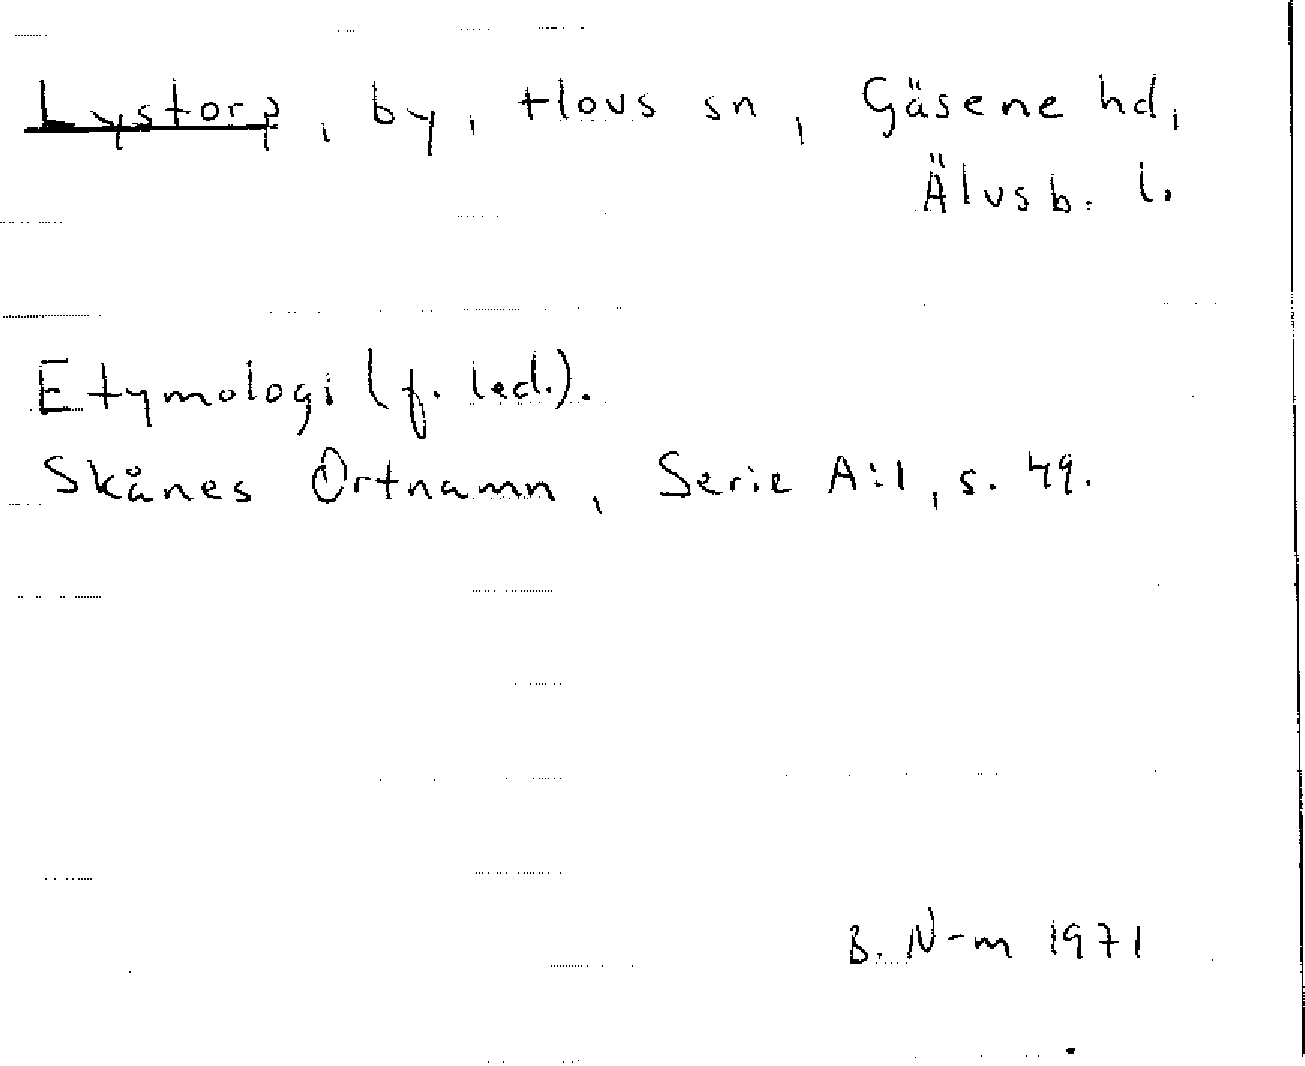 Lystorp, by, Hovs sn, Gäsene hd,
Älvsb. l.
Etymologi (f. led.).
Skånes Ortnamn, Serie A:1, s. 49.
B. N-m 1971